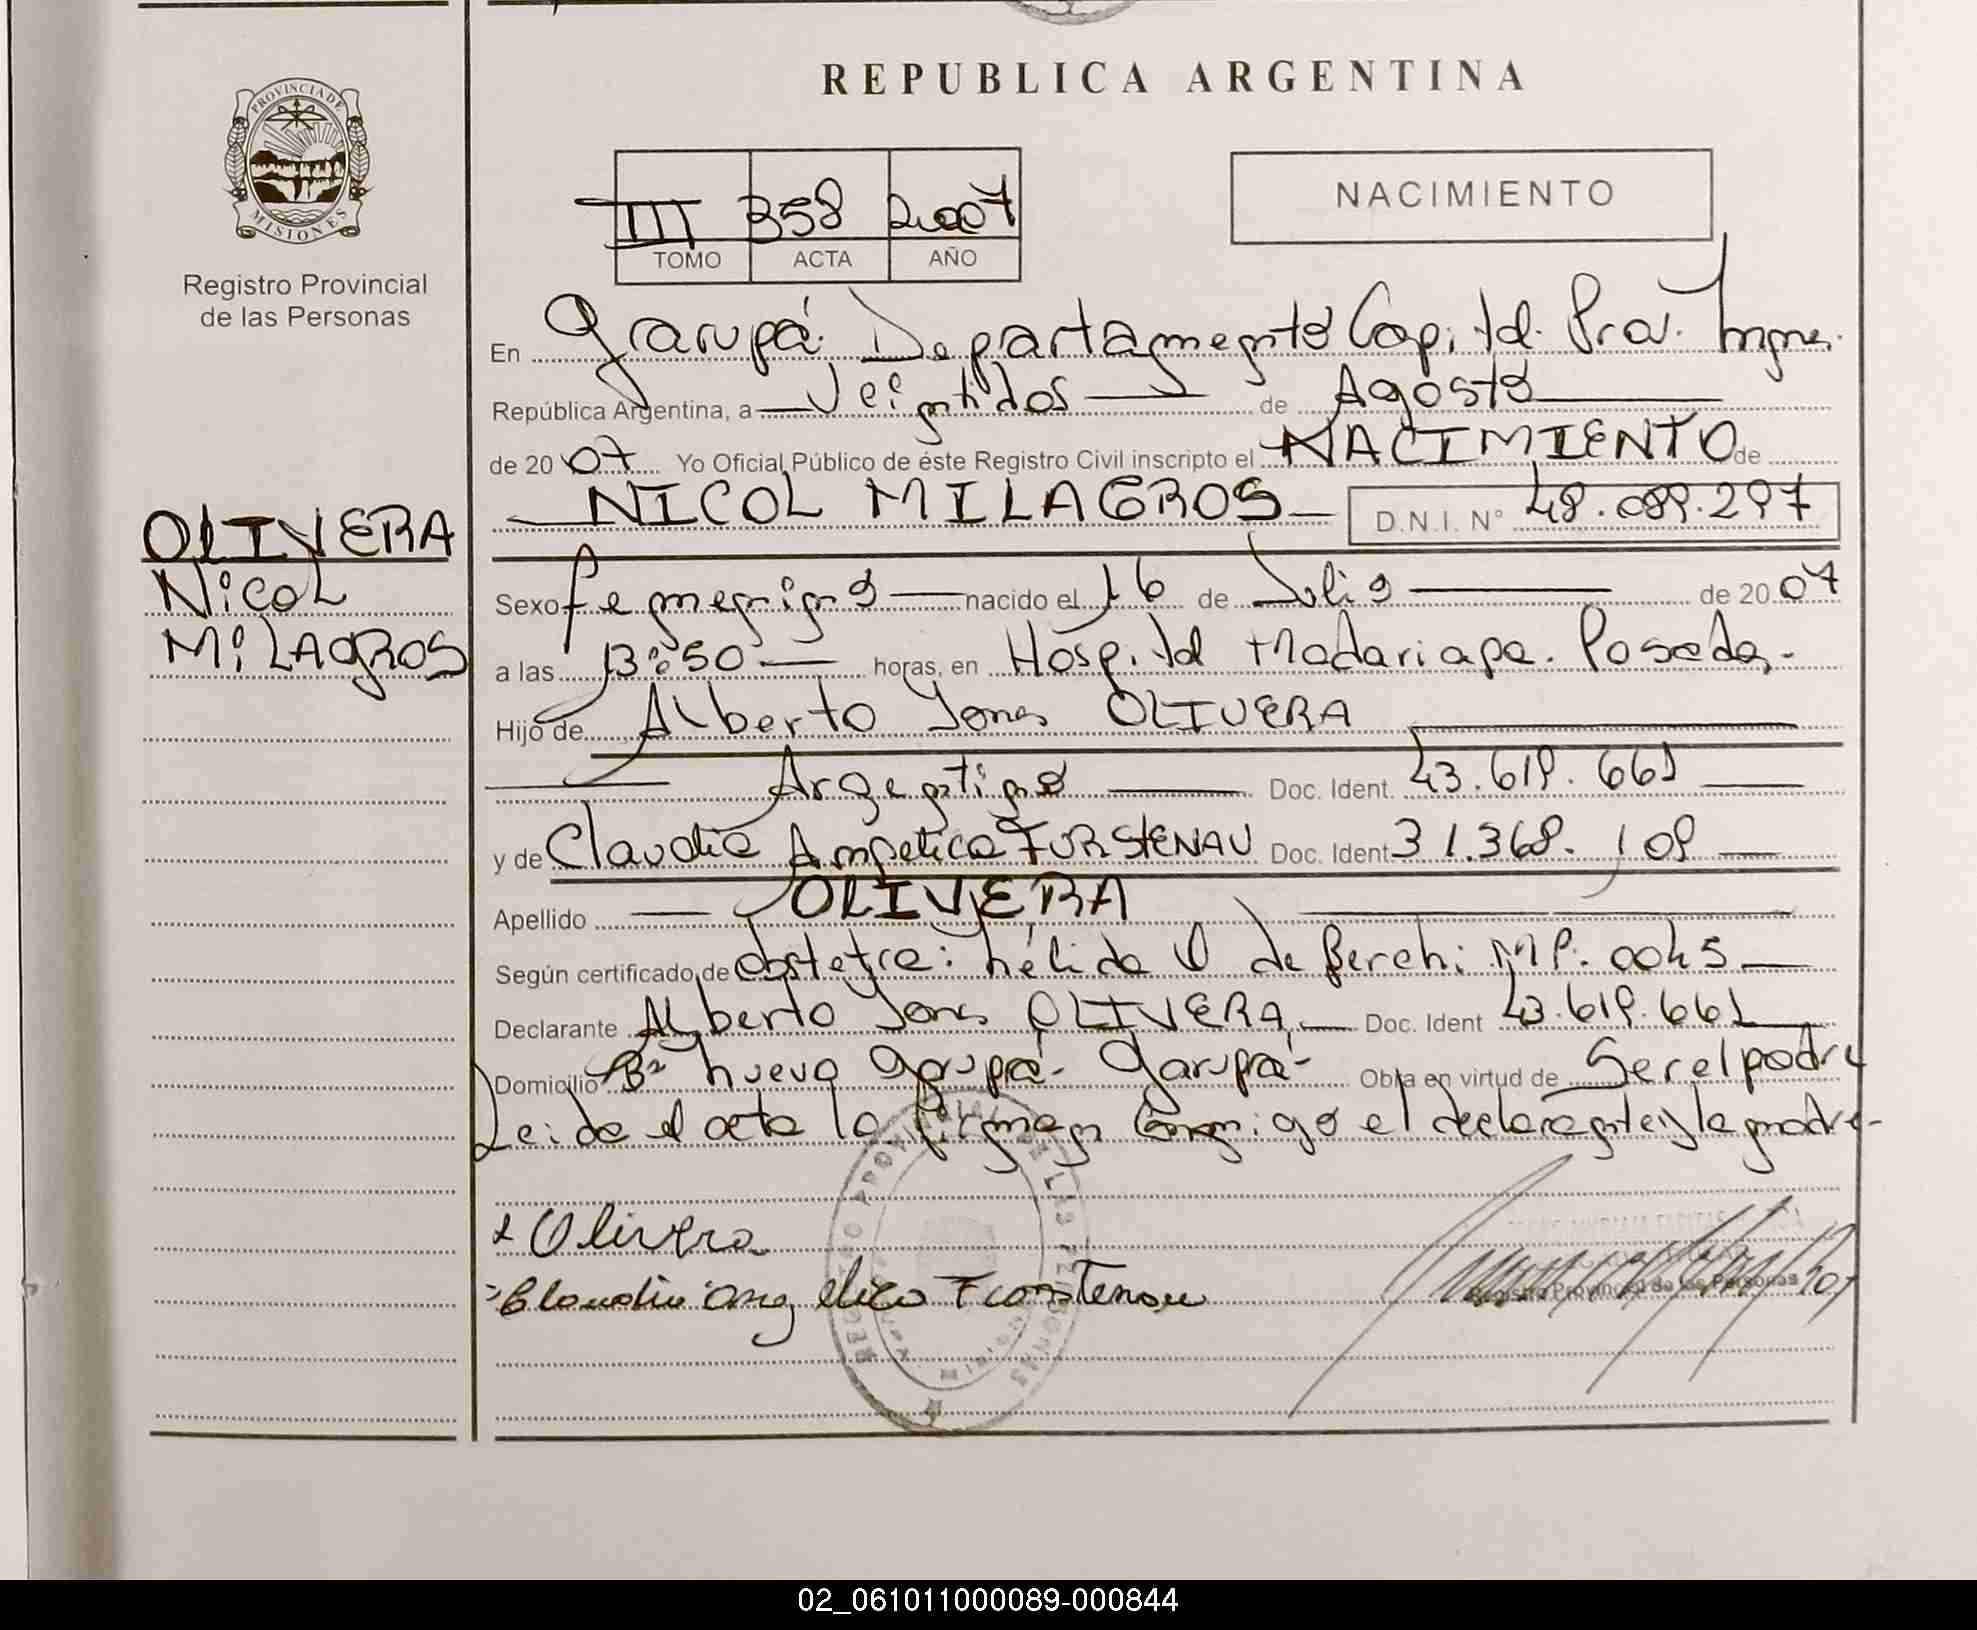 REPUBLICA ARGENTINA
PROVINCIA DE
MISIONES
Registro Provincial
de las Personas
III 358 2007
TOMO ACTA AÑO
NACIMIENTO
OLIVERA
Nicol
MiLAgROS
En Garupá. Departamento Capital. Prov.
República Argentina, a Veintidos de Agosto
de 2007 Yo Oficial Público de éste Registro Civil inscripto el NACIMIENTO de
NICOL MILAGROS D.N.I. N° 48.089.297
Sexo femenino nacido el 16 de Julio de 2007
a las 13:50 horas, en Hospital Madariaga. Posadas.
Hijo de Alberto OLIVERA
Argentino Doc. Ident. 43.619.661
y de Claudia Angelica FURSTENAU Doc. Ident 31.368.109
Apellido OLIVERA
Según certificado de obstetra: hélida de MP. 0045
Declarante Alberto OLIVERA Doc. Ident 43.619.661
Domicilio B° nuevo garupá. Garupá- Obra en virtud de Ser el padre
Leida el acta la firman conmigo el declarante y la madre-
Olivera
Claudia Angelica
REGISTRO PROVINCIAL DE LAS PERSONAS
Registro Provincial de las Personas
02_061011000089-000844